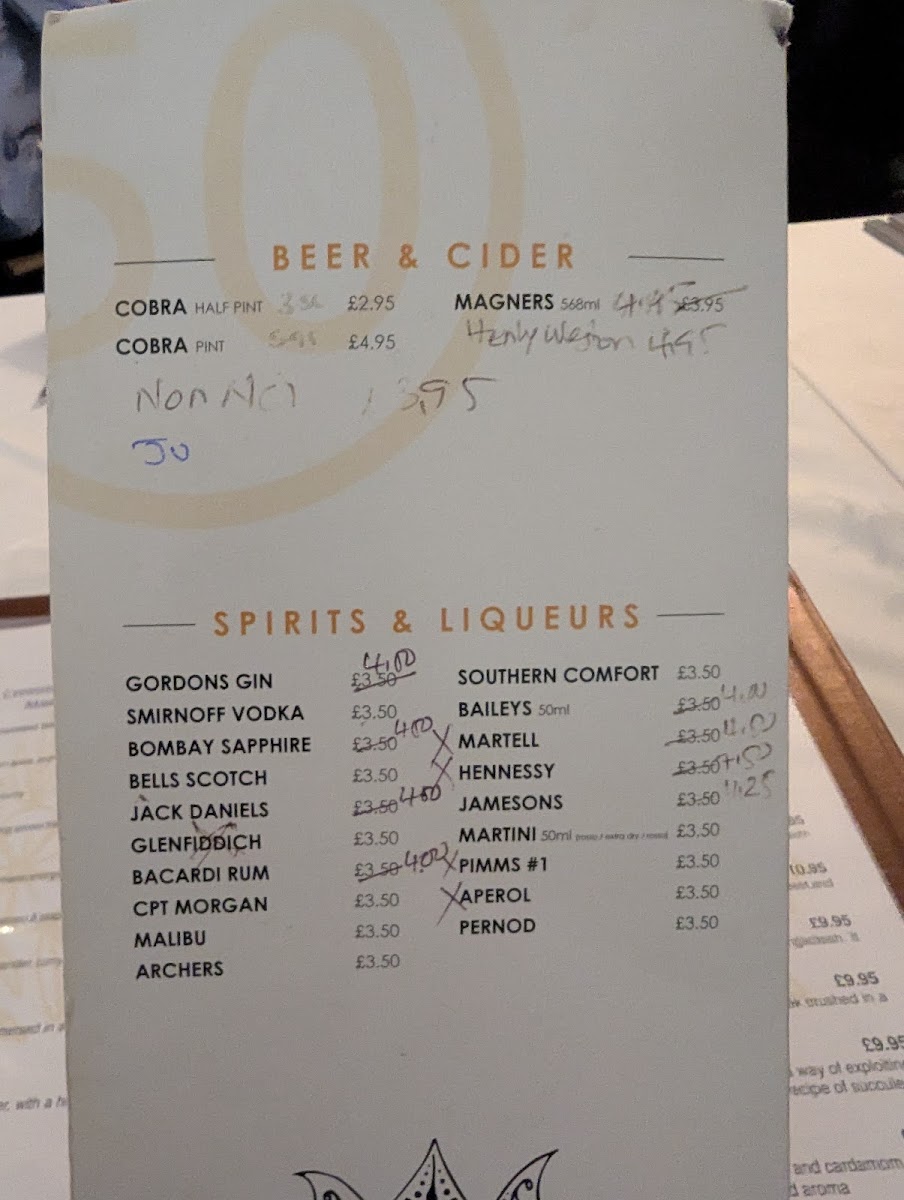 50
BEER & CIDER
COBRA HALF PINT £2.95
COBRA PINT £4.95
Non 3,95
JU
MAGNERS 568ml 4.45 £3.95
Henly Weston 4.95
SPIRITS & LIQUEURS
GORDONS GIN £3.50 4.00
SMIRNOFF VODKA £3.50
BOMBAY SAPPHIRE £3.50 4.00
BELLS SCOTCH £3.50
JACK DANIELS £3.50 4.00
GLENFIDDICH £3.50
BACARDI RUM £3.50 4.00
CPT MORGAN £3.50
MALIBU £3.50
ARCHERS £3.50
SOUTHERN COMFORT £3.50
BAILEYS 50ml £3.50 4.00
X MARTELL £3.50 4.00
X HENNESSY £3.50 4.50
JAMESONS £3.50 4.25
MARTINI 50ml £3.50
X PIMMS #1 £3.50
X APEROL £3.50
PERNOD £3.50
10.95
£9.95
£9.95
crushed in a
£9.95
way of exploiting
recipe of succule
and cardamom
d aroma
er, with a h